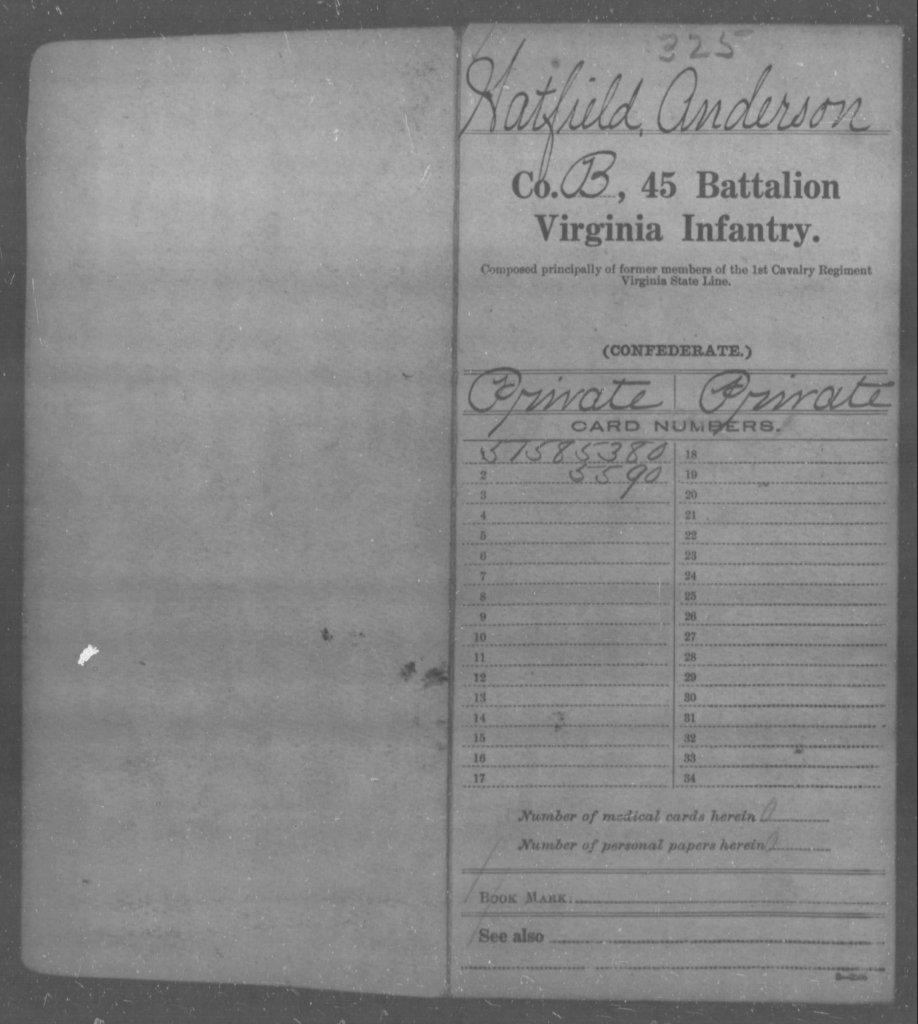 325
Hatfield, Anderson
Co. B, 45 Battalion
Virginia Infantry.
Composed principally of former members of the 1st Cavalry Regiment
Virginia State Line.
(CONFEDERATE.)
Private | Private
CARD NUMBERS.
51585380 18
2 5590 19
3 20
4 21
5 22
6 23
7 24
8 25
9 26
10 27
11 28
12 29
13 30
14 31
15 32
16 33
17 34
Number of medical cards herein 0
Number of personal papers herein 0
BOOK MARK:
See also